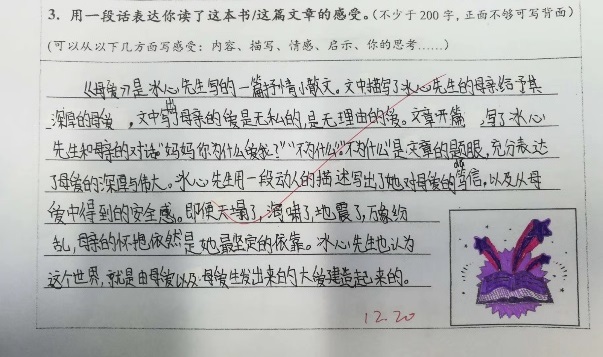 3. 用一段话表达你读了这本书/这篇文章的感受。(不少于 200 字，正面不够可写背面)
(可以从以下几方面写感受：内容、描写、情感、启示、你的思考……)
《母爱》是冰心先生写的一篇抒情小散文。文中描写了冰心先生的母亲给予其
深厚的母爱，文中写出母亲的爱是无私的，是无理由的爱。文章开篇，写了冰心
先生和母亲的对话“妈妈你为什么爱我？”“不为什么”。“不为什么”是文章的题眼，充分表达
了母爱的深厚与伟大。冰心先生用一段动人的描述写出了她对母爱的笃信，以及从母
爱中得到的安全感。即便天塌了，海啸了，地震了，万象纷
乱，母亲的怀抱依然是她最坚定的依靠。冰心先生也认为
这个世界，就是由母爱以及母爱生发出来的大爱建造起来的。
12.20